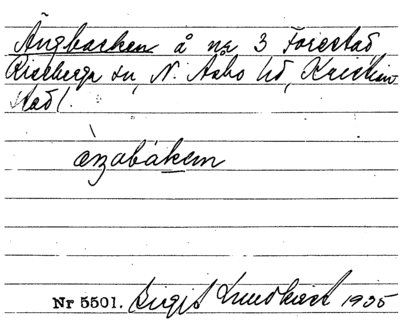 Ängbacken å nr 3 Forestad
Riseberga sn, N. Åsbo hd, Kristian
stad l.
àzabákem
Nr 5501. Birgit Lundkvist 1935